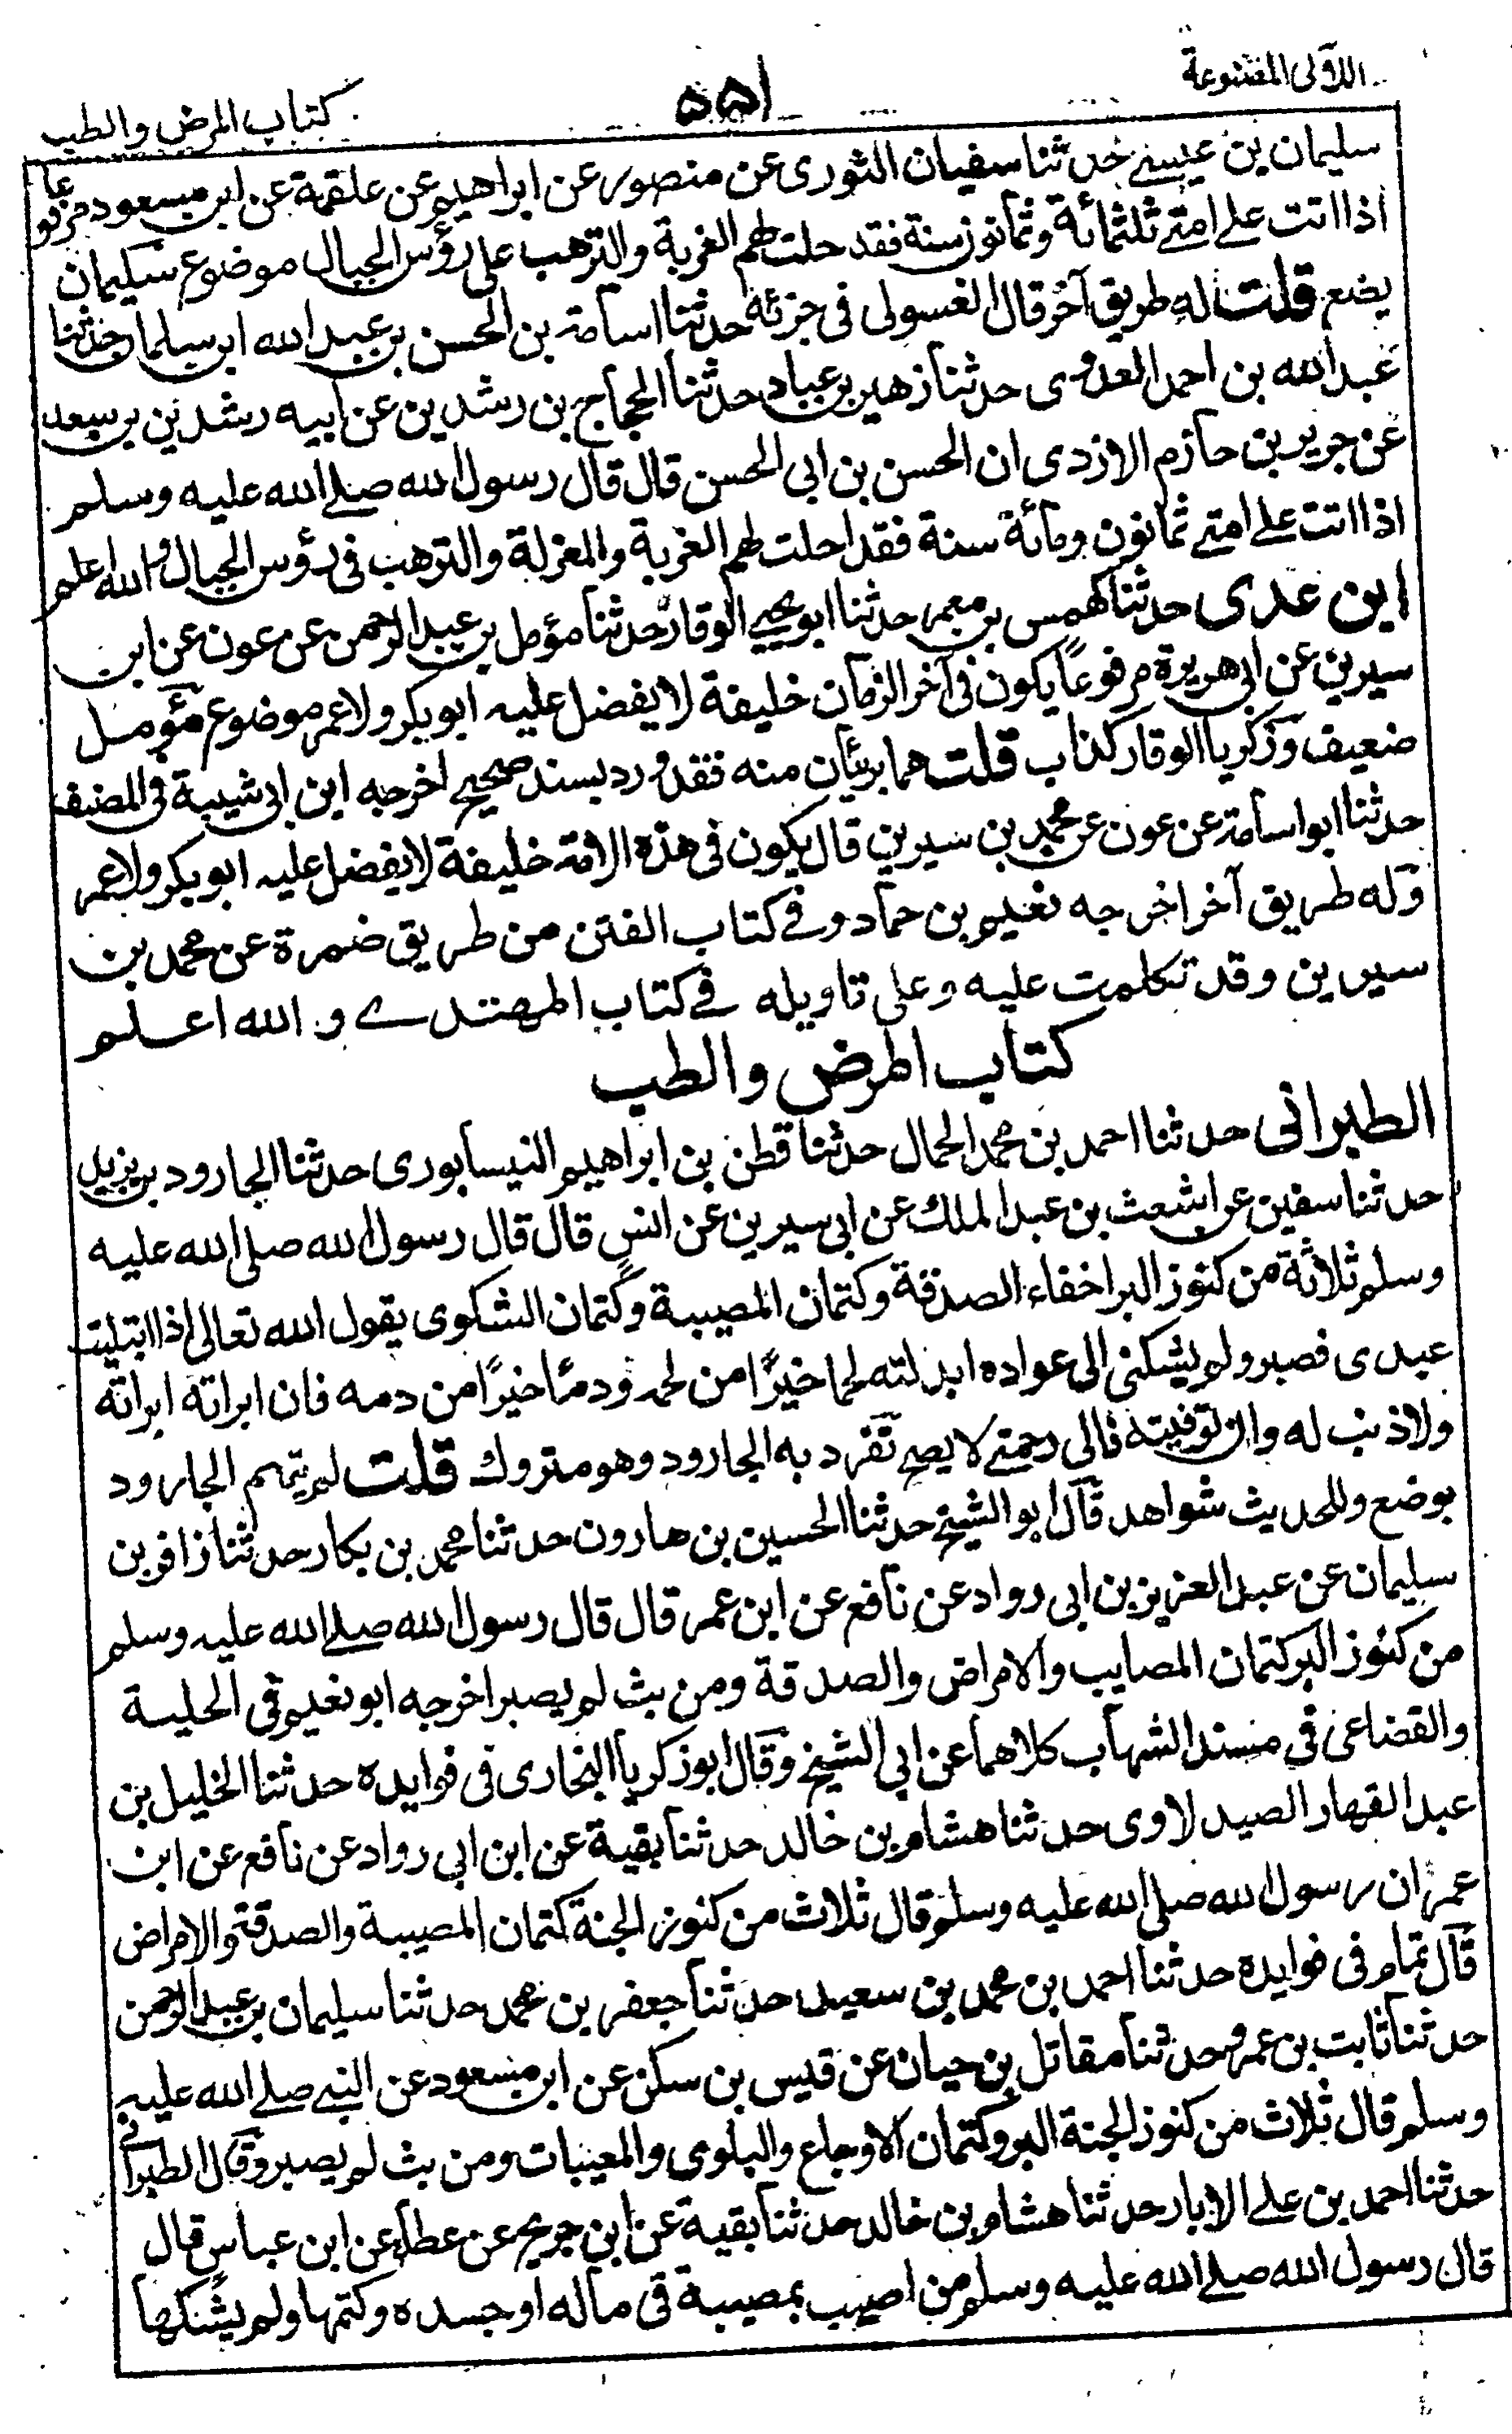 اللآلى المصنوعة
٥٥١
كتاب المرض والطب
سليمان بن عيسى حدثنا سفيان الثورى عن منصور عن ابراهيم عن علقمة عن ابن مسعود مرفوعا
اذا اتت على امتى ثلثمائة وثمانون سنة فقد حلت لهم الغربة والترهب على رؤس الجبال موضوع سليمان
يضع قلت له طريق آخر قال الغسولى فى جزئه حدثنا اسامة بن الحسن بن عبد الله ابن سليمان حدثنا
عبد الله بن احمد العدوى حدثنا زهير بن عباد حدثنا الحجاج بن رشدين عن ابيه رشدين بن سعد
عن جرير بن حازم الازدى ان الحسن بن ابى الحسن قال قال رسول الله صلى الله عليه وسلم
اذا اتت على امتى ثمانون ومائة سنة فقد احلت لهم الغربة والمعزلة والترهب فى رؤس الجبال والله اعلم
ابن عدى حدثنا كهمس بن معمر حدثنا ابو يحيى الوقار حدثنا مؤمل بن عبد الرحمن عن عون عن ابن
سيرين عن ابى هريرة مرفوعًا يكون فى آخر الزمان خليفة لا يفضل عليه ابو بكر ولا عمر موضوع مؤمل
ضعيف وزكريا الوقار كذاب قلت هما بريئان منه فقد ورد بسند صحيح اخرجه ابن ابى شيبة فى المصنف
حدثنا ابو اسامة عن عون عن محمد بن سيرين قال يكون فى هذه الامة خليفة لا يفضل عليه ابو بكر ولا عمر
وله طريق آخر اخرجه نعيم بن حماد و فى كتاب الفتن من طريق ضمرة عن محمد بن
سيرين وقد تكلمت عليه وعلى تاويله فى كتاب المهتدى و الله اعلم
كتاب المرض والطب
الطبرانى حدثنا احمد بن محمد الحمال حدثنا قطن بن ابراهيم النيسابورى حدثنا الجارود بن يزيد
حدثنا سفين عن اشعث بن عبد الملك عن ابى سيرين عن انس قال قال رسول الله صلى الله عليه
وسلم ثلاثة من كنوز البر اخفاء الصدقة وكتمان المصيبة وكتمان الشكوى يقول الله تعالى اذا ابتليت
عبدى فصبر ولم يشكنى الى عواده ابدلته لحما خيرًا من لحمه ودمًا خيرًا من دمه فان ابراته ابراته
ولا ذنب له وان توفيته فالى رحمتى لا يصح تفرد به الجارود وهو متروك قلت لم يتهم الجارود
بوضع وللحديث شواهد قال ابو الشيخ حدثنا الحسين بن هارون حدثنا محمد بن بكار حدثنا زافر بن
سليمان عن عبد العزيز بن ابى رواد عن نافع عن ابن عمر قال قال رسول الله صلى الله عليه وسلم
من كنوز البر كتمان المصايب والامراض والصدقة ومن بث لم يصبر اخرجه ابو نعيم فى الحلية
والقضاعى فى مسند الشهاب كلاهما عن ابى الشيخ وقال ابو زكريا البخارى فى فوايده حدثنا الخليل بن
عبد القهار الصيدلاوى حدثنا هشام بن خالد حدثنا بقية عن ابن ابى رواد عن نافع عن ابن
عمر ان رسول الله صلى الله عليه وسلم قال ثلاث من كنوز الجنة كتمان المصيبة والصدقة والامراض
قال تمام فى فوايده حدثنا احمد بن محمد بن سعيد حدثنا جعفر بن محمد حدثنا سليمان بن عبد الرحمن
حدثنا ثابت بن عمرو حدثنا مقاتل بن حيان عن قيس بن سكن عن ابن مسعود عن النبى صلى الله عليه
وسلم قال ثلاث من كنوز الجنة البر وكتمان الاوجاع والبلوى والمعينات ومن بث لم يصبر وقال الطبرانى
حدثنا احمد بن على الابار حدثنا هشام بن خالد حدثنا بقية عن ابن جريج عن عطاء عن ابن عباس قال
قال رسول الله صلى الله عليه وسلم من اصيب بمصيبة فى ماله او جسده وكتمها ولم يشكها